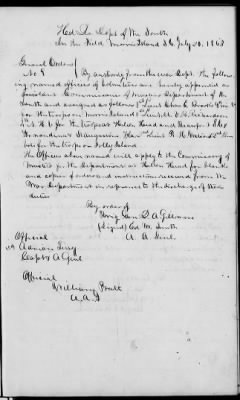 Hed Qrs Dept of the South
In the Field, Morris Island S.C. July 26, 1863
General Orders
No 8 By authority from the War Dept. the follow
ing named officers of Volunteers are hereby appointed as
Assistant Commissaries of Musters Department of the
South and assigned as follows 1st Lieut
for the troops on Morris Island Lieut
for the troops at Hilton Head and Beaufort S.C.
Lieut
for the troops on Folly Island
The Officers above named will apply to the Commissary of
Musters for the Department at Hilton Head for blanks
and copies of orders and instructions received from the
War Department in reference to the discharge of their
duties
By order of
Brig Gen Q A Gillmore
(Signed) Ed. W. Smith
A. A. Genl.
Official
Adrian Terry
Capt & A Genl
Official
William
A. A. G